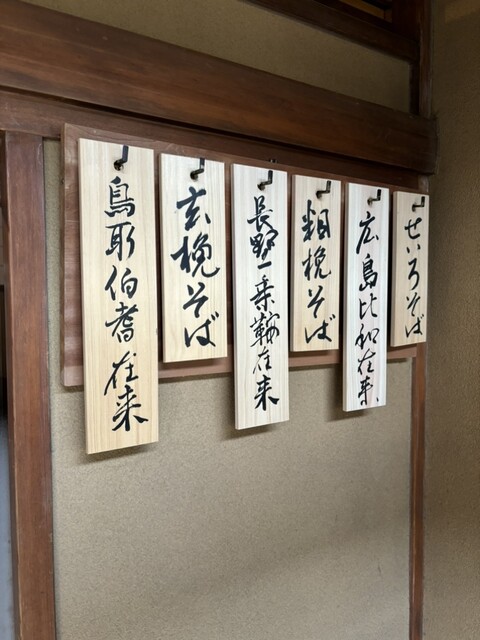 せいろそば
広島比和在来
粗挽そば
長野乗鞍在来
玄挽そば
鳥取伯耆在来